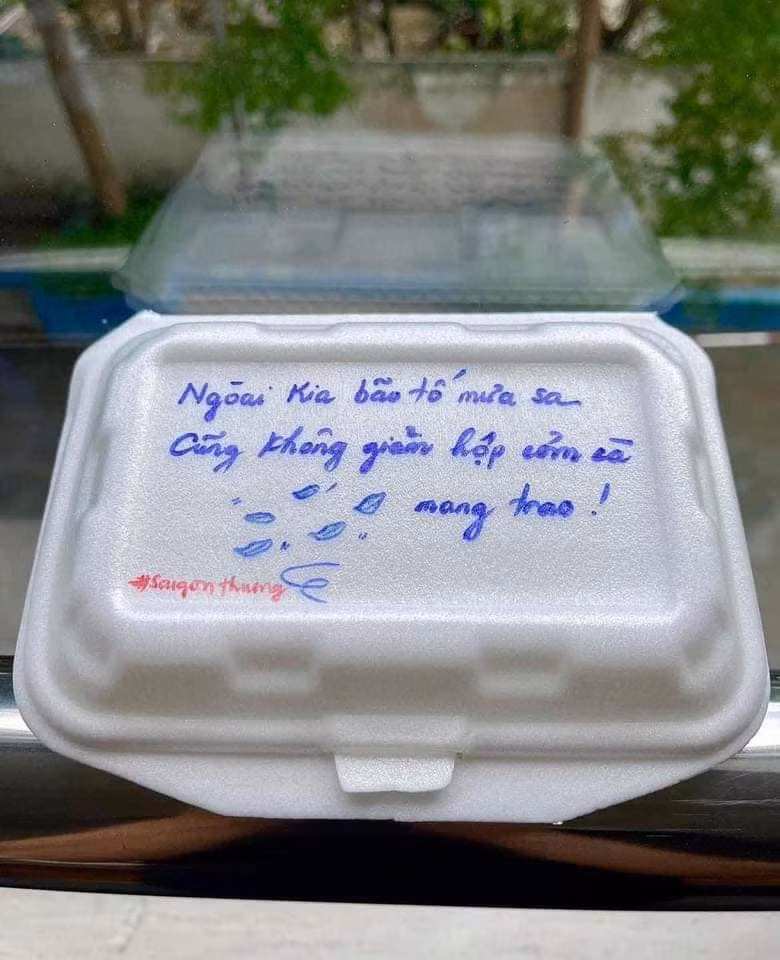 Ngoài kia bão tố mưa sa
Cũng không giảm hộp cơm cà
mang trao!
#Saigonthuong